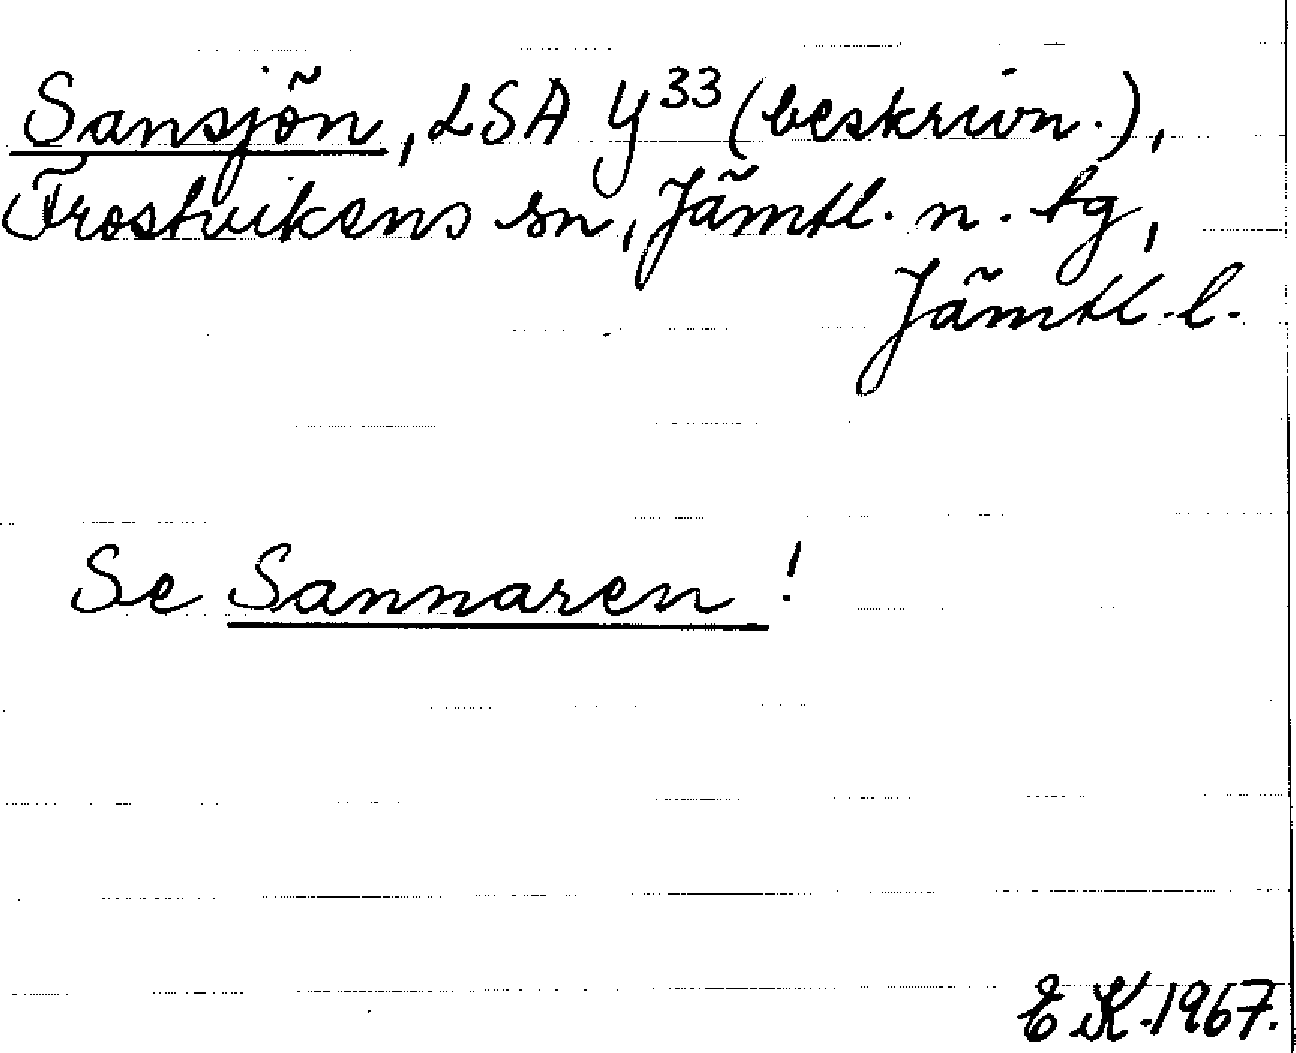 Sansjön, LSA Y³³ (beskrivn.),
Frostvikens sn, Jämtl. n. tg,
Jämtl. l.
Se Sannaren !
E.K. 1967.